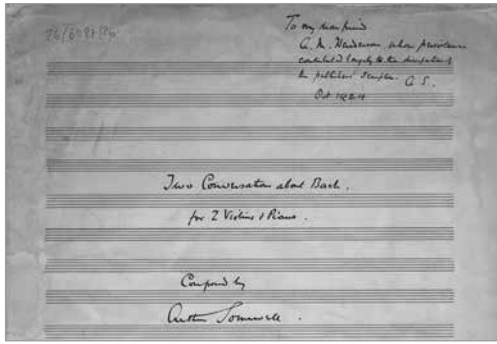 To my dear friend
A. M. Henderson, whose persistence
contributed largely to the dissipation of
the publishers' scruples. A. S.
Oct 1924
Two Conversations about Bach.
for 2 Violins & Piano.
Composed by
Arthur Somervell.